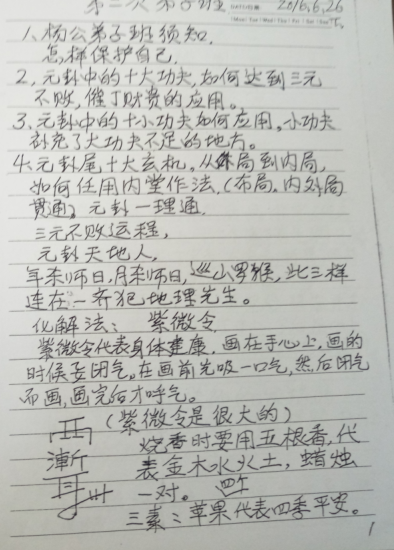 第二次弟子班 DATE 2016.6.26
1、杨公弟子班须知.
怎样保护自己.
2、元卦中的十大功夫,如何达到三元
不败,催丁财贵的应用。
3、元卦中的十小功夫如何应用。小功夫
补充了大功夫不足的地方。
4、元卦尾十大玄机。从外局到内局,
如何任用内堂作法.(布局.内外局
贯通)元卦一理通.
三元不败运程,
元卦天地人,
年杀师日,月杀师日,巡山罗猴,此三样
连在一齐犯地理先生。
化解法: 紫微令
紫微令代表身体健康.画在手心上,画的
时候要闭气。在画前先吸一口气,然后闭气
而画,画完后才呼气。
(紫微令是很大的)
烧香时要用五根香,代
漸 表金木水火土,蜡烛
一对。
三素:苹果代表四季平安。
1